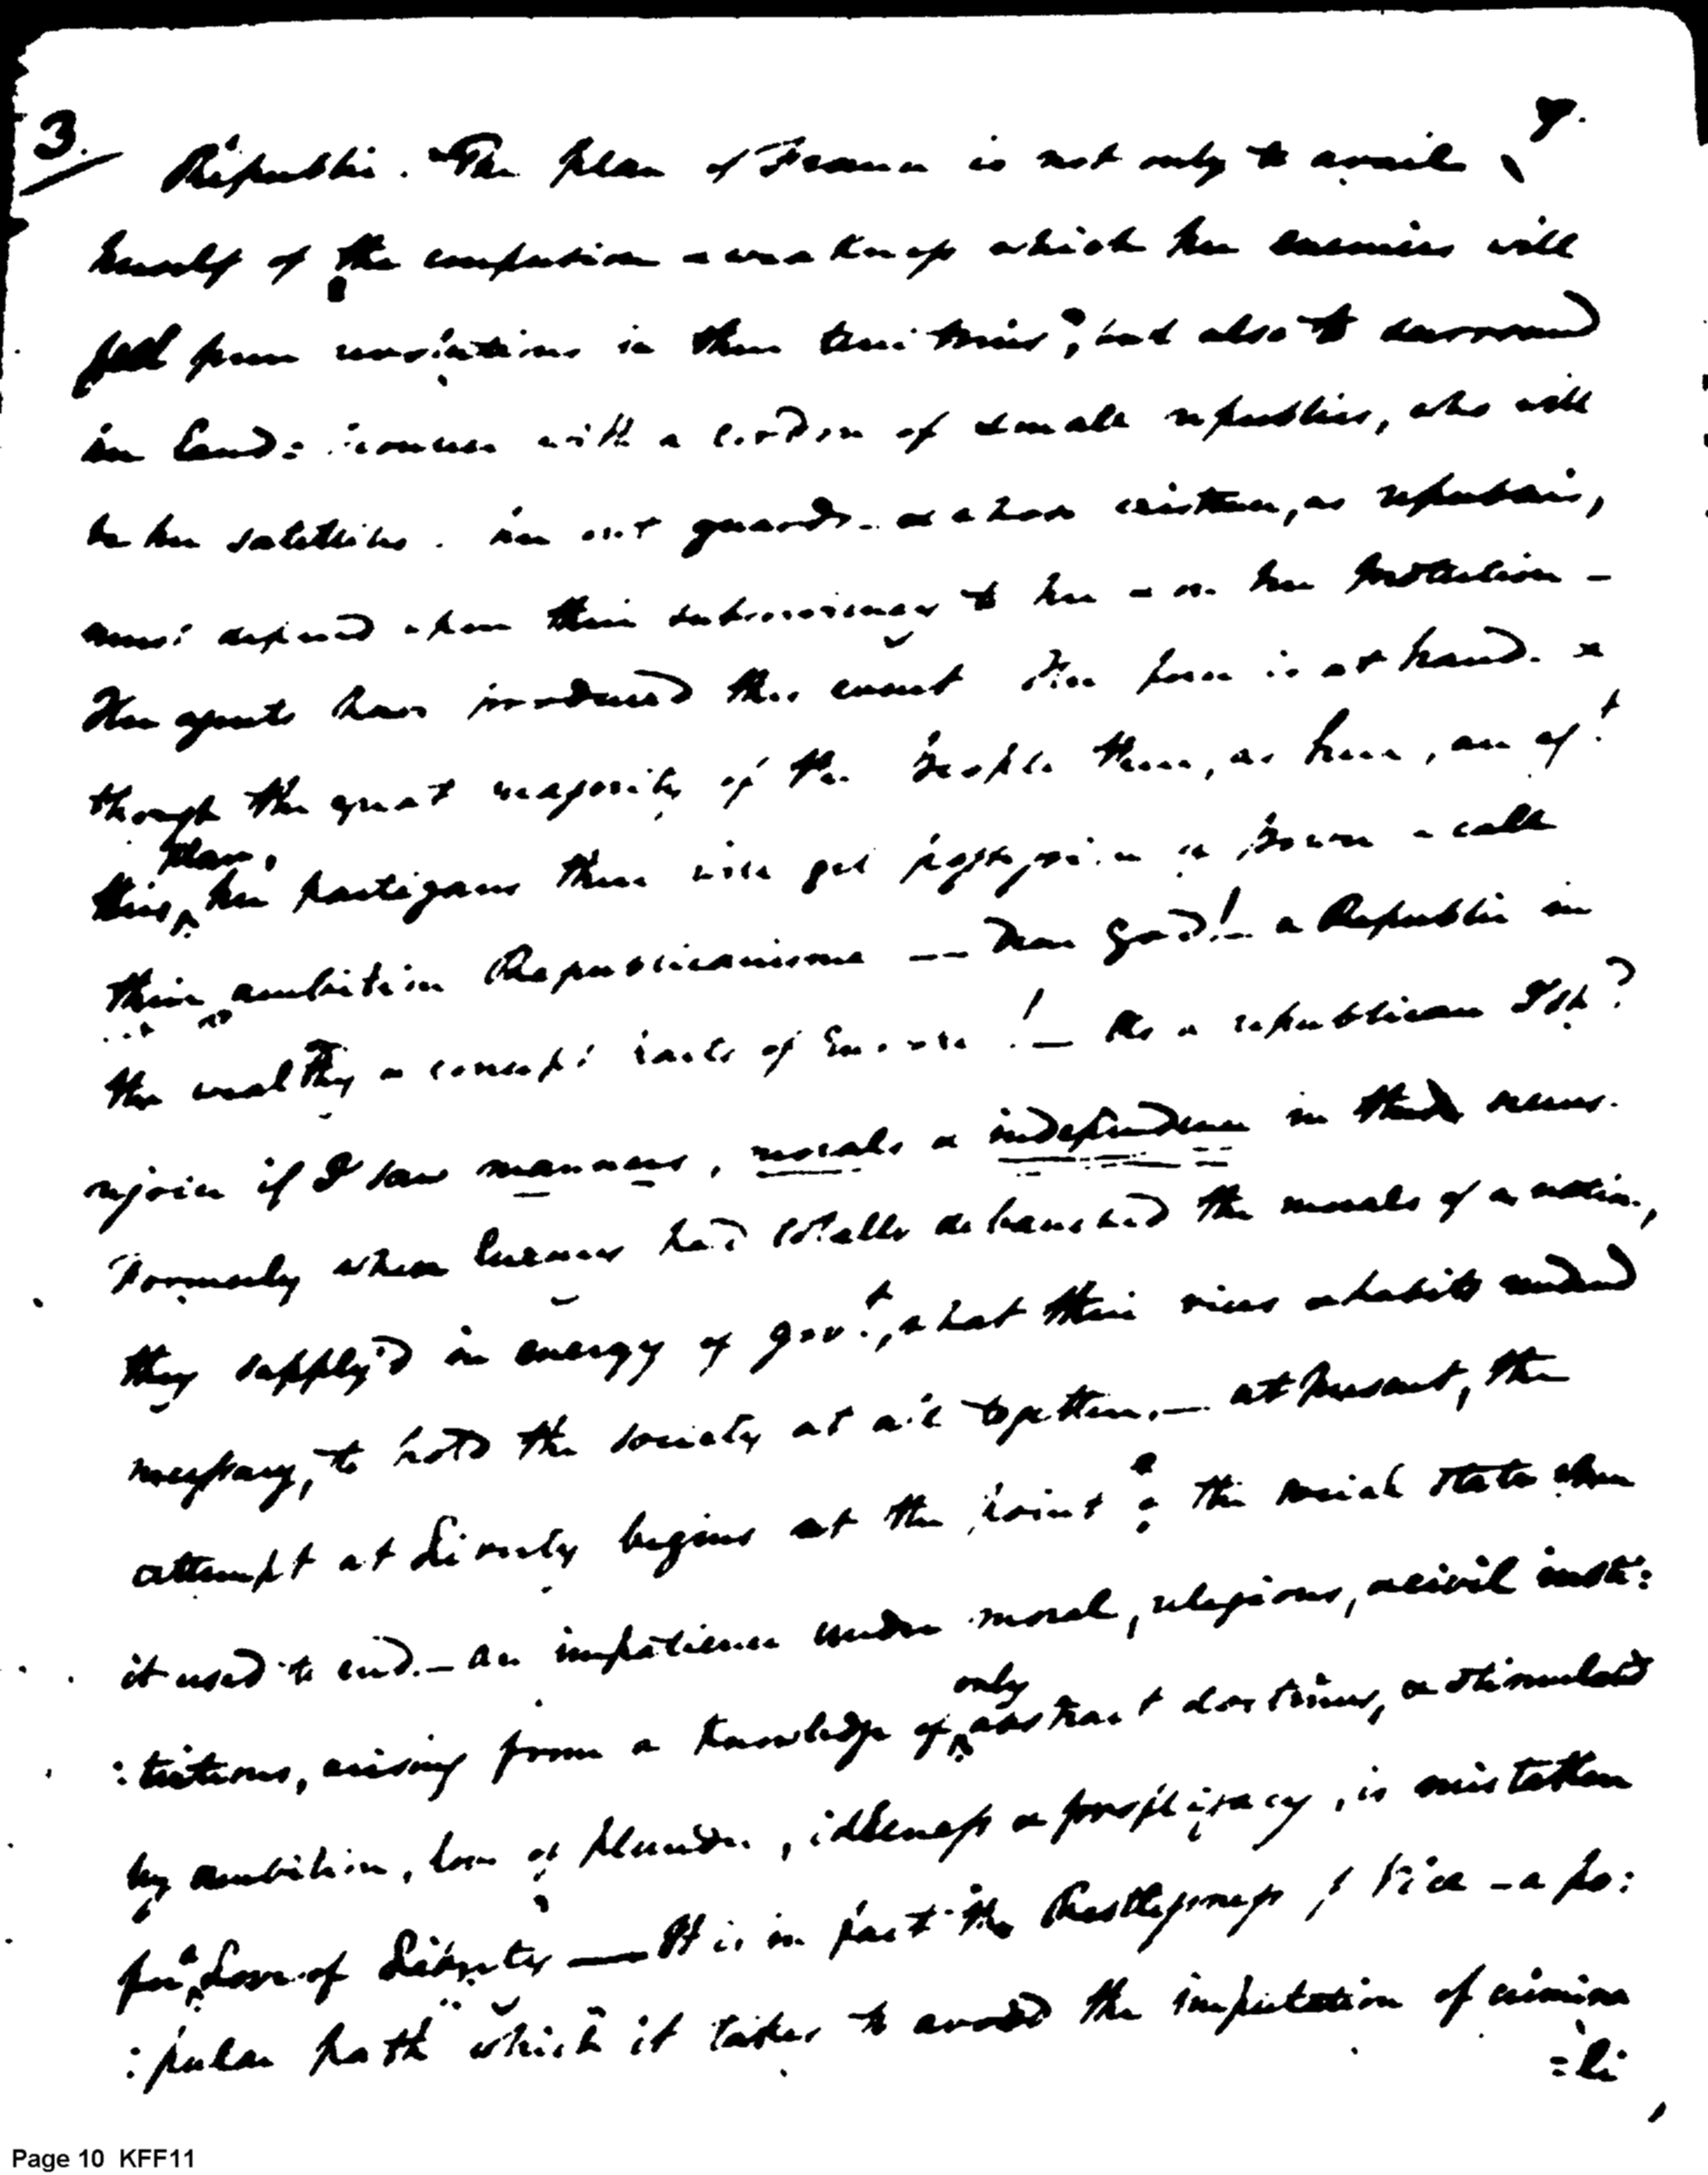 3.
7.
Republic. The plan of France is not only to avail
herself of the confusion & weakness which her enemies will
feel from revolutions in their territories; but also to surround
her land: with a cordon of small republics, who will
be her satellites. her out guards. & whose existence, as republics,
must depend upon their subserviency to her & on her protection –
Her agents have produced this event there is at hand. &
though the great majority of the people there, as here, are agt
this plan, her partizans there will get possession of power & call
their ambition Republicanism –– Dear god! – a Republic in
the wealthy & corrupt of Europe! – As a republican I sh?
rejoice if I saw manners, morals & independence in these
Formerly when luxury had totally debauched the morals of a nation,
they supply'd in energy of govt., what their vices & habits rendered
necessary, to hold the society at all together. – at present, the
attempt at Liberty begins at the point of the social state where
it used to end. – An impatience under moral, religious, & civil insti:
:tutions, arising from a knowledge of only abstract doctrines, & stimulated
by ambition, love of plunder, idleness & profligacy, is mistaken
for a Love of Liberty — It is in fact the Restlessness of Vice – a po:
:pular path which it takes to avoid the imputation of crimina
=li
Page 10 KFF11